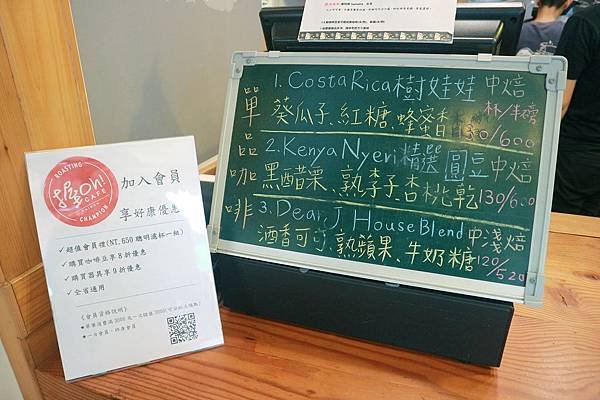 單品咖啡
1. Costa Rica 樹娃娃 中焙
杯/半磅
葵瓜子、紅糖、蜂蜜香 /600
2. Kenya Nyeri 精選 圓豆 中焙
黑醋栗、熟李子、杏桃乾 130/600
3. Dear, J House Blend 中淺焙
酒香可可、熟蘋果、牛奶糖 120/520
ROASTING
Oh!
CAFE
CHAMPION
加入會員
享好康優惠
✓超值會員禮(NT.650聰明濾杯一組)
✓購買咖啡豆享8折優惠
✓購買器具享9折優惠
✓全省通用
《會員資格說明》
★一日會員，終身會員